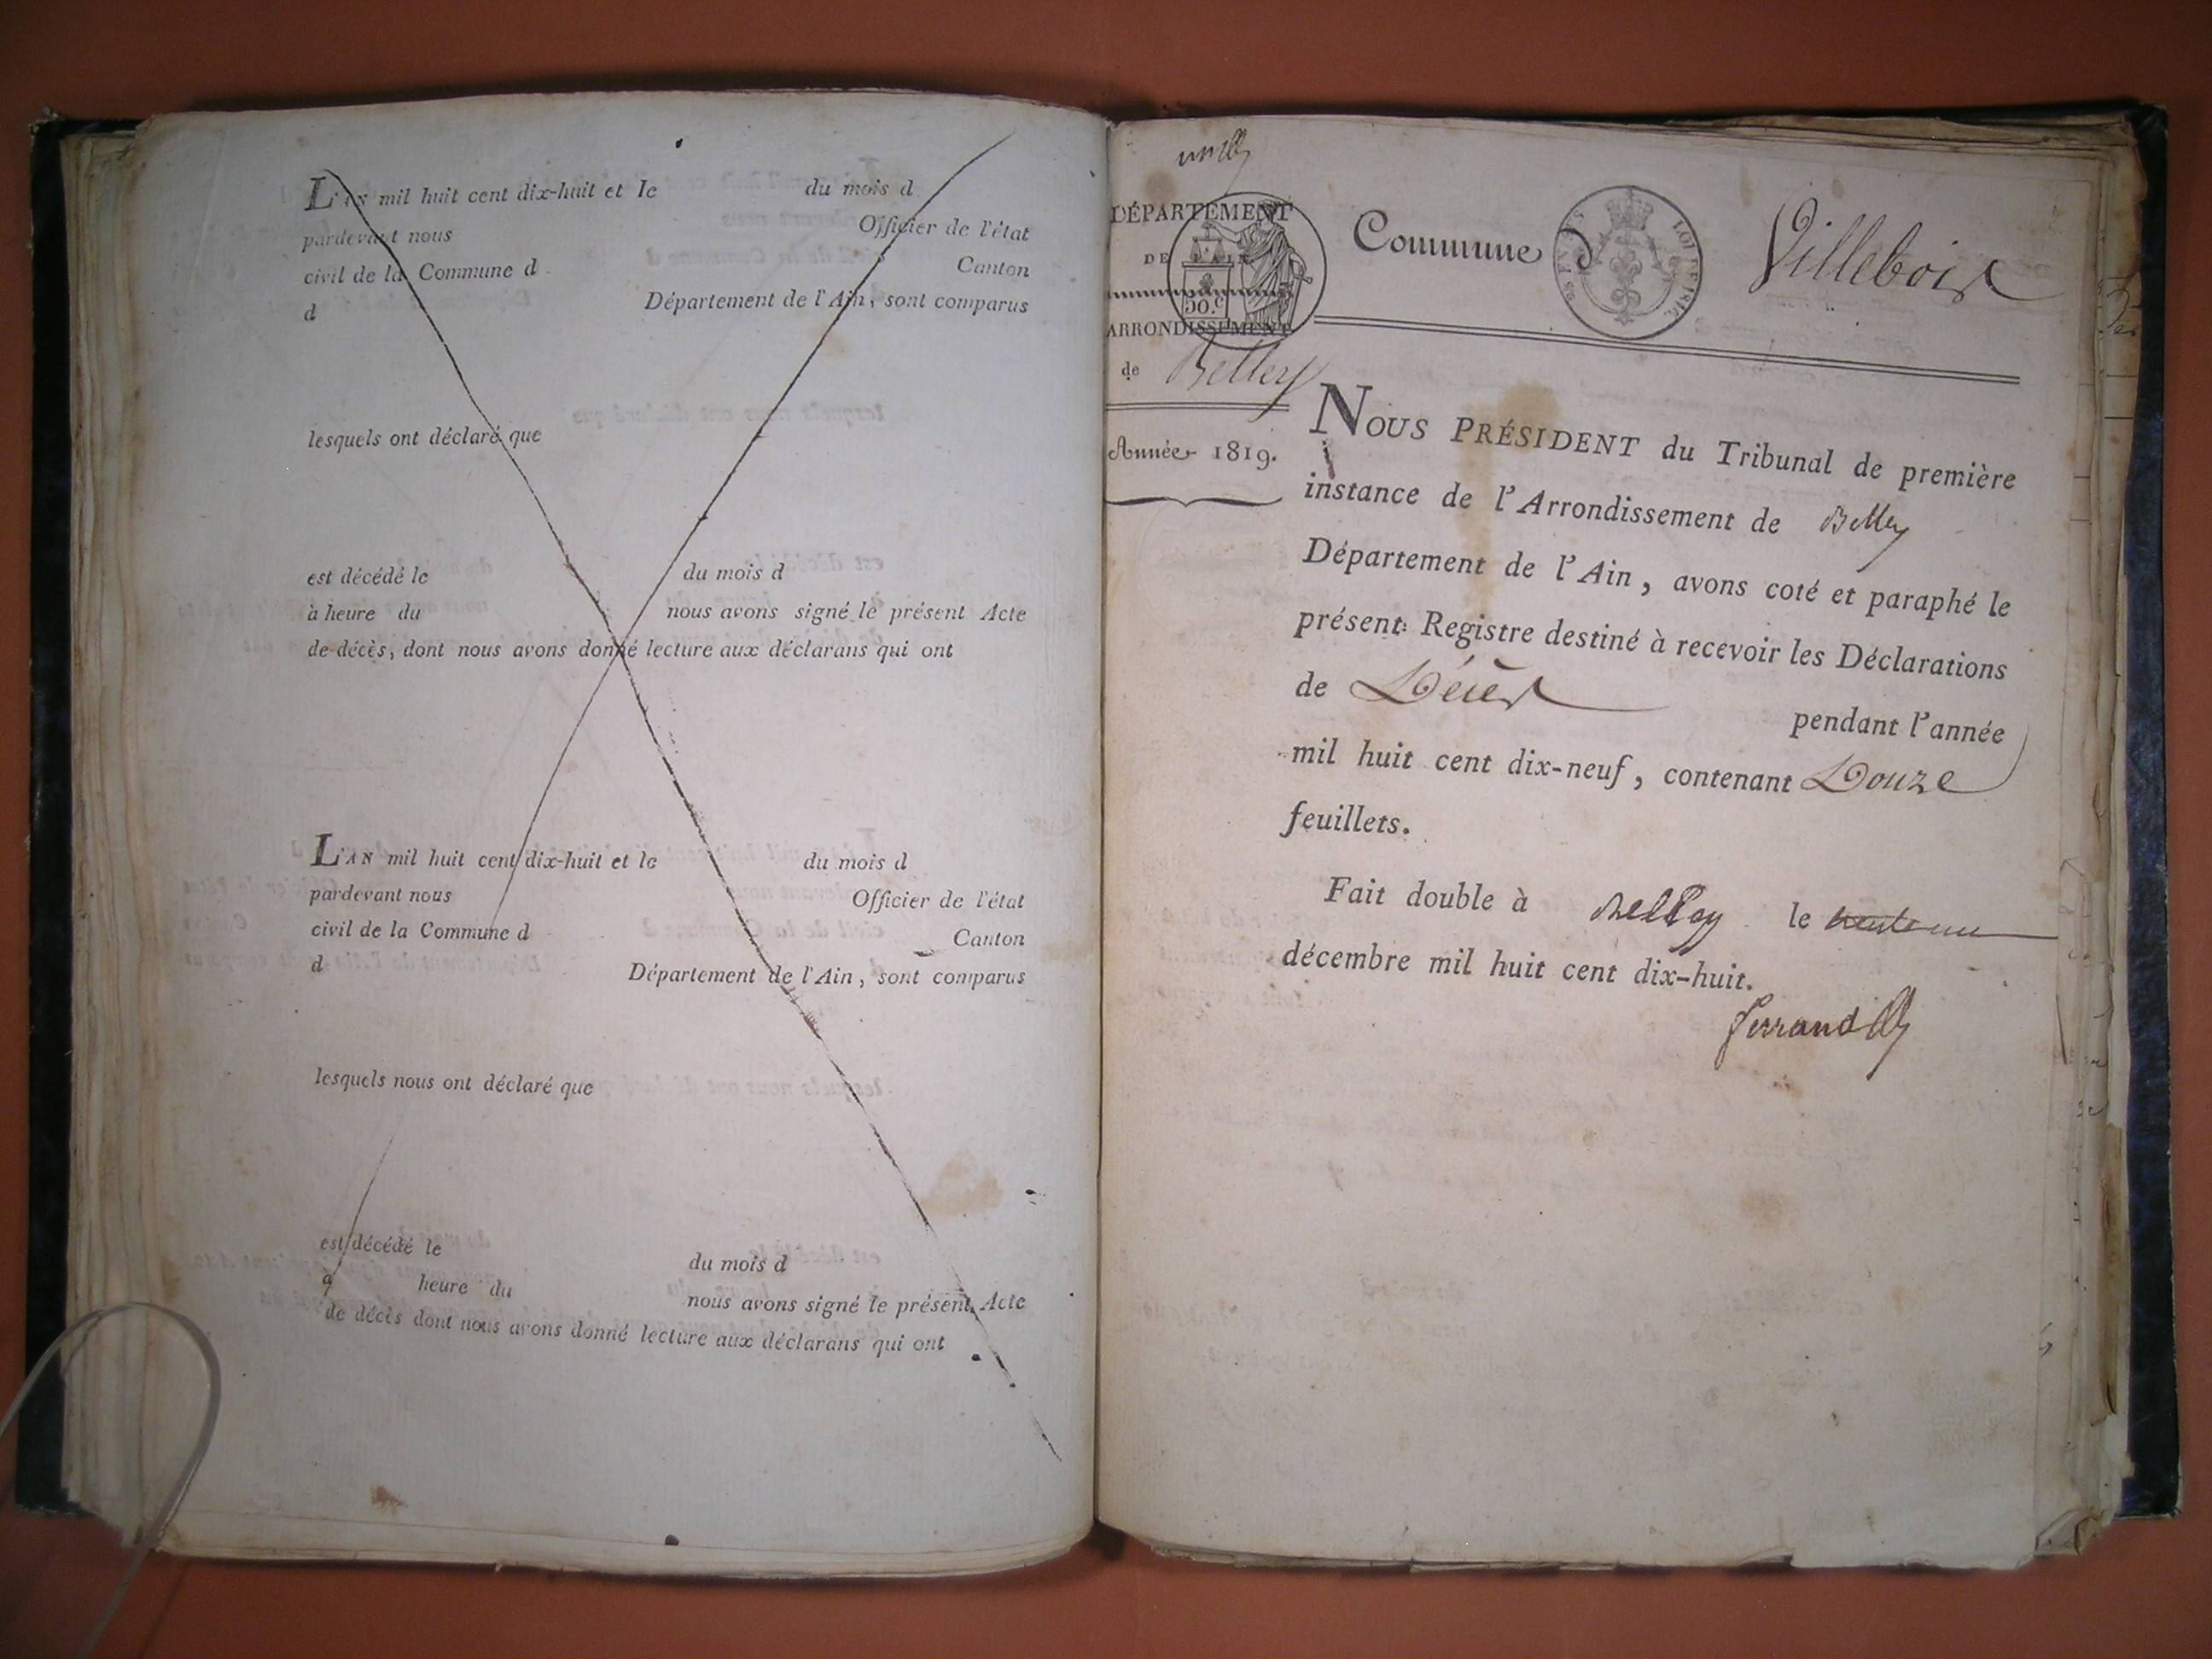 L'AN mil huit cent dix-huit et le du mois d
pardevant nous Officier de l'état
civil de la Commune d Canton
d Département de l'Ain, sont comparus
lesquels ont déclaré que
est décédé le du mois d
à heure du nous avons signé le présent Acte
de décès, dont nous avons donné lecture aux déclarans qui ont
L'AN mil huit cent dix-huit et le du mois d
pardevant nous Officier de l'état
civil de la Commune d Canton
d Département de l'Ain, sont comparus
lesquels nous ont déclaré que
est décédé le du mois d
à heure du nous avons signé le présent Acte
de décès dont nous avons donné lecture aux déclarans qui ont
DÉPARTEMENT
DE L'AIN
50.c
ARRONDISSEMENT
de Belley
Année 1819.
Commune de Villebois
NOUS PRÉSIDENT du Tribunal de première
instance de l'Arrondissement de Belley
Département de l'Ain, avons coté et paraphé le
présent Registre destiné à recevoir les Déclarations
de Décès pendant l'année
mil huit cent dix-neuf, contenant Douze
feuillets.
Fait double à Belley le trente un
décembre mil huit cent dix-huit.
ferrand